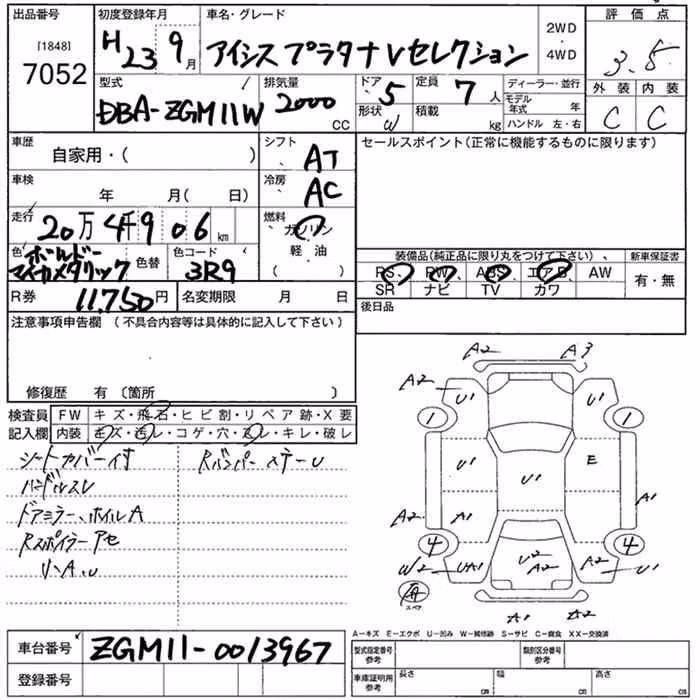 出品番号
[1848]
7052
初度登録年月
H23 9月
車名・グレード
アイシス プラタナ Vセレクション
2WD
・
4WD
評価点
3.5
外装 内装
C C
型式
DBA-ZGM11W
排気量
2000
CC
ドア
5
形状
W
定員 7人
積載 kg
ディーラー・並行
モデル年式 年
ハンドル 左・右
車歴
自家用・( )
車検
年 月( 日)
走行
20万4千906km
色
ボルドー
マイカメタリック
色替
色コード
3R9
シフト
AT
冷房
AC
燃料
ガソリン
軽・油
( )
R券 11,750円
名変期限 月 日
セールスポイント(正常に機能するものに限ります)
装備品(純正品に限り丸をつけて下さい)、
新車保証書
PS、 PW、 ABS エアB、 AW
SR ナビ TV カワ
有・無
後日品
注意事項申告欄 (不具合内容等は具体的に記入して下さい)
修復歴 有 〔箇所 〕
検査員
記入欄
FW キズ・飛石・ヒビ割・リペア跡・X要
内装 キズ・汚レ・コゲ・穴・スレ・キレ・破レ
シートカバー付
ハンドルスレ
ドアミラー、ホイルA
Rスポイラーアセ
リハA、U
Rバンパーステー U
A2 A3
A2 U1 U1
1 1
U1 U1 E
A2 A1 A1
4 4
W2 UA1 U2 A2 A2 U1
スペア
A1 A2
A-キズ E-エクボ U-凹み W-補修跡 S-サビ C-腐食 XX-交換済
車台番号 ZGM11-0013967
登録番号
型式指定番号
参考
類別区分番号
参考
車庫証明用
参考
長さ cm
幅 cm
高さ cm